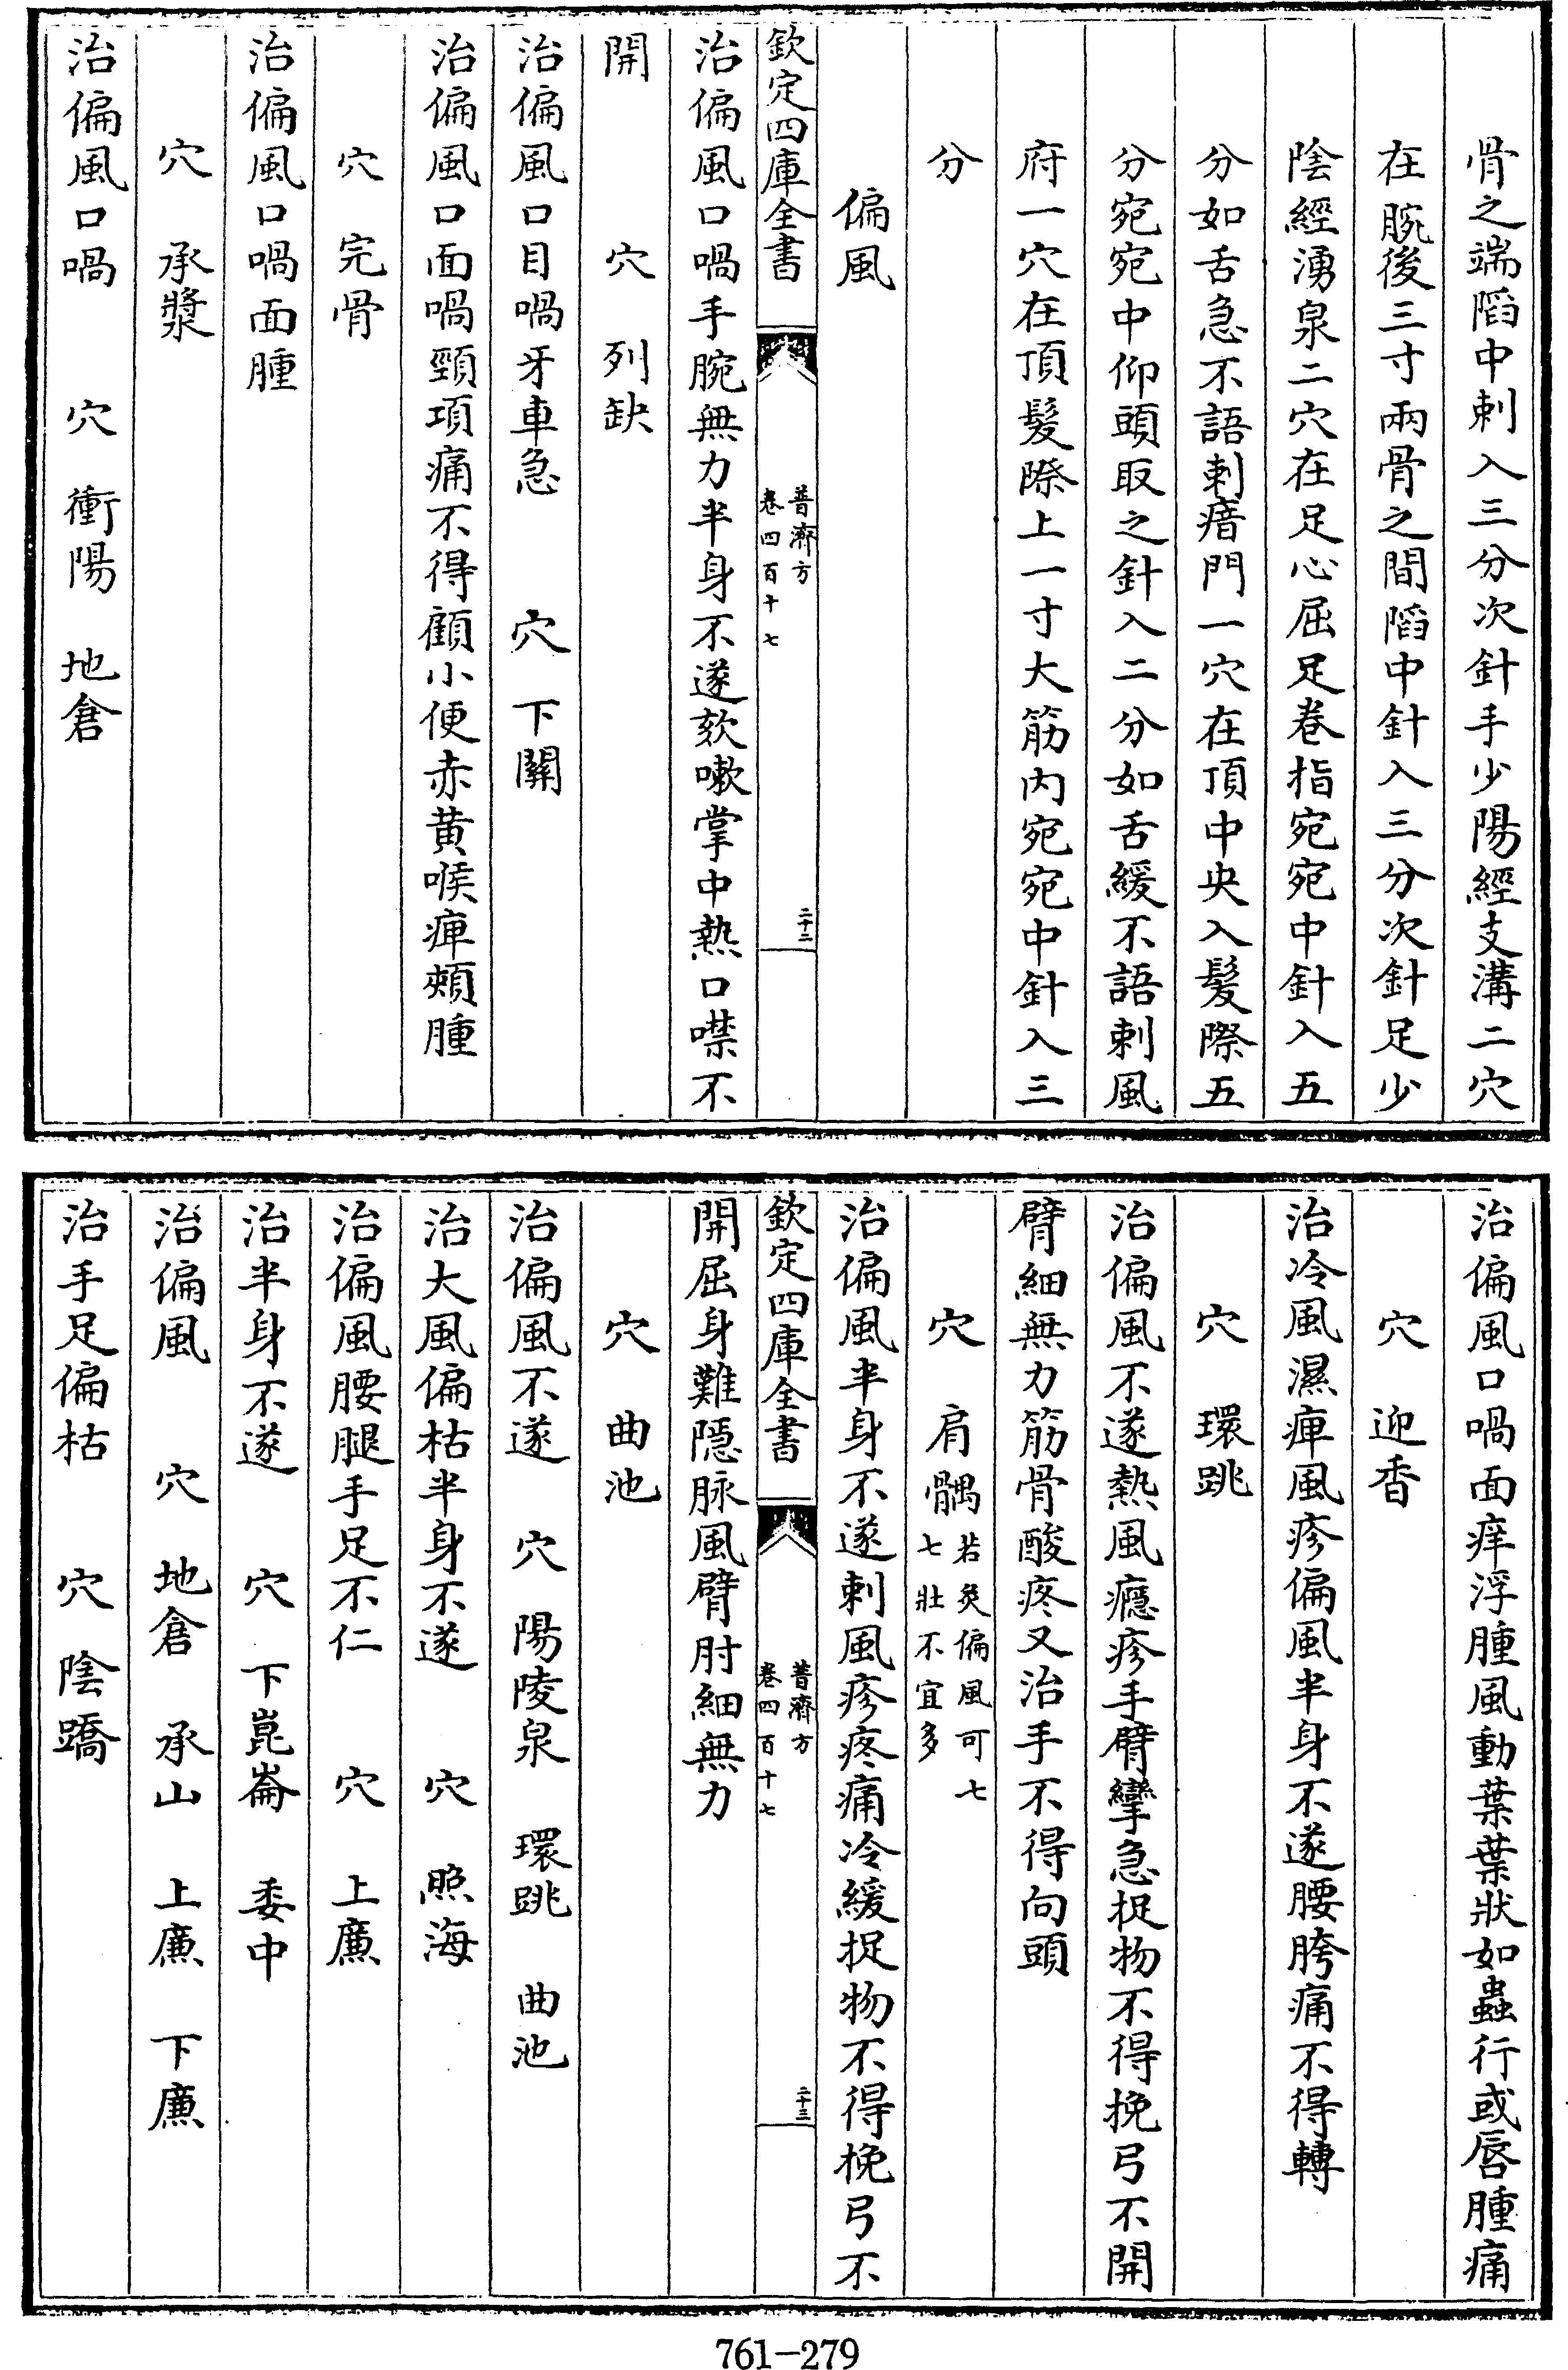 骨之端陷中刺入三分次針手少陽經支溝二穴
在腕後三寸兩骨之間陷中針入三分次針足少
陰經湧泉二穴在足心屈足卷指宛宛中針入五
分如舌急不語刺瘖門一穴在頂中央入髮際五
分宛宛中仰頭取之針入二分如舌緩不語刺風
府一穴在頂髮際上一寸大筋内宛宛中針入三
分
偏風
欽定四庫全書
普濟方
卷四百十七
二十二
治偏風口喎手腕無力半身不遂欬嗽掌中熱口噤不
開 穴 列缺
治偏風口目喎牙車急 穴 下關
治偏風口面喎頸項痛不得顧小便赤黄喉痺頰腫
穴 完骨
治偏風口喎面腫
穴 承漿
治偏風口喎 穴 衝陽 地倉
治偏風口喎面痒浮腫風動葉葉狀如蟲行或唇腫痛
穴 迎香
治冷風濕痺風疹偏風半身不遂腰胯痛不得轉
穴 環跳
治偏風不遂熱風癮疹手臂攣急捉物不得挽弓不開
臂細無力筋骨酸疼又治手不得向頭
穴 肩髃若灸偏風可七
七壯不宜多
治偏風半身不遂刺風疹疼痛冷緩捉物不得挽弓不
欽定四庫全書
普濟方
卷四百十七
二十三
開屈身難隠脉風臂肘細無力
穴 曲池
治偏風不遂 穴 陽陵泉 環跳 曲池
治大風偏枯半身不遂 穴 照海
治偏風腰腿手足不仁 穴 上廉
治半身不遂 穴 下崑崙 委中
治偏風 穴 地倉 承山 上廉 下廉
治手足偏枯 穴 陰蹻
761-279